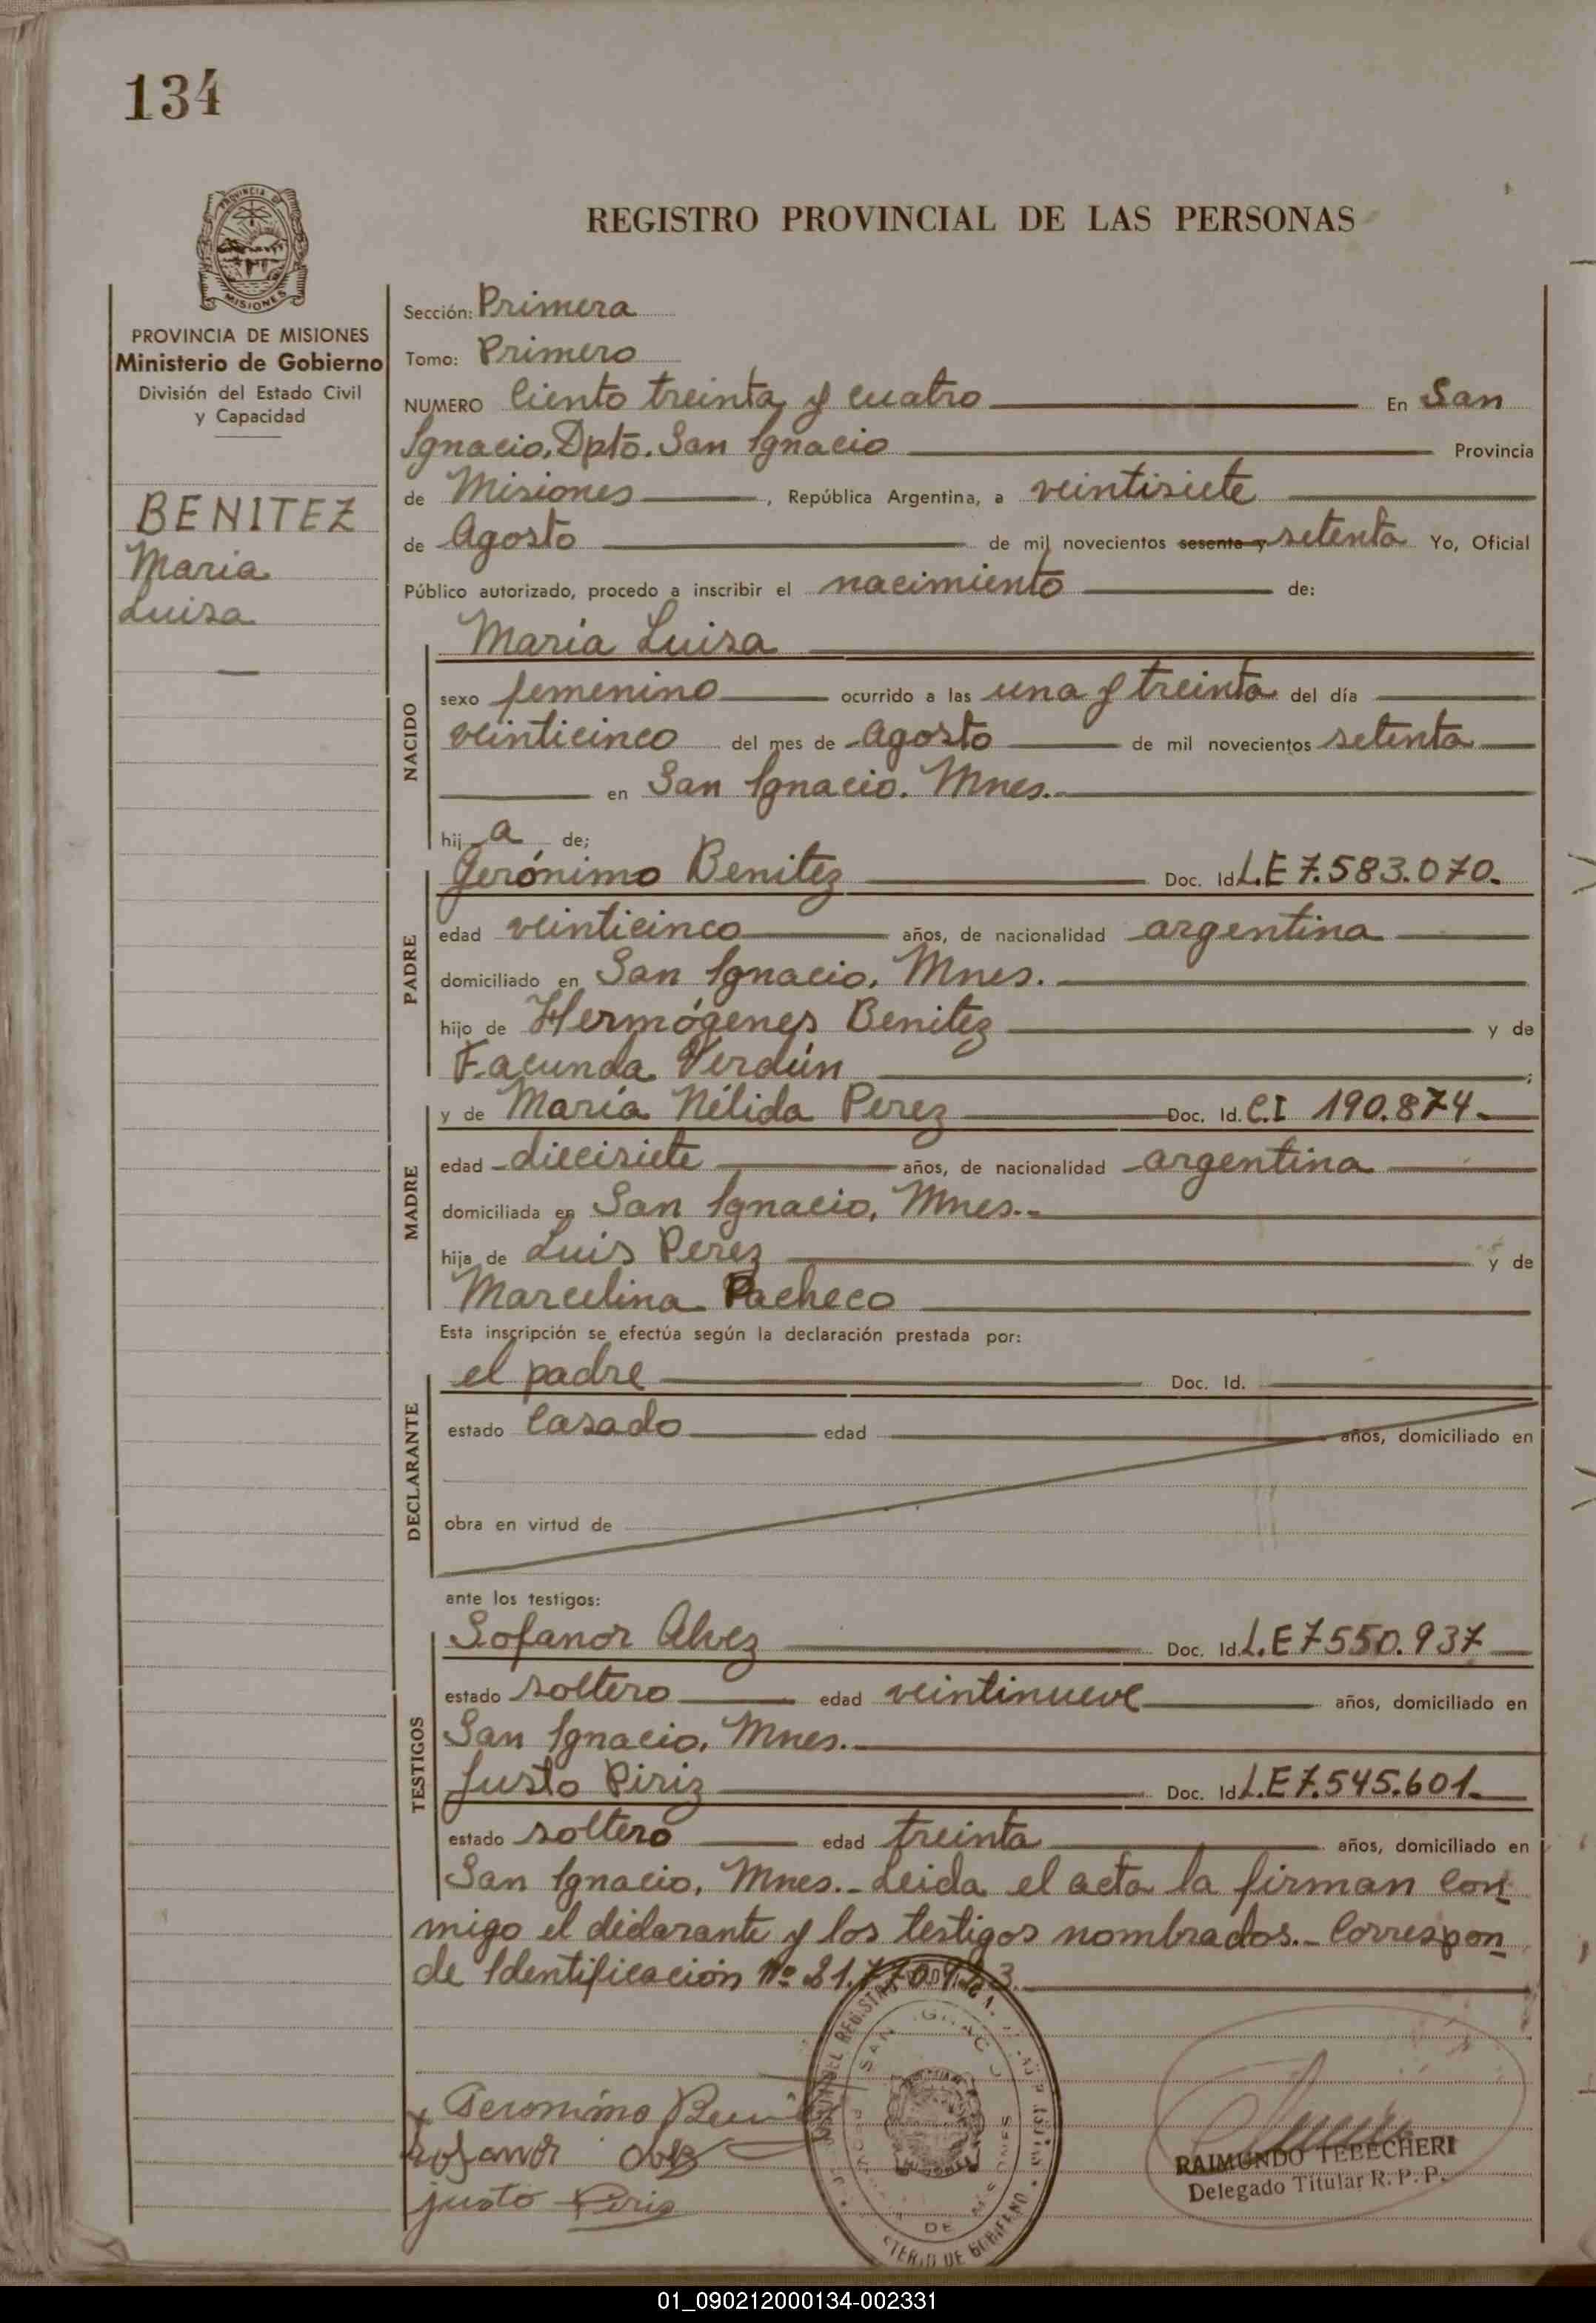 134
PROVINCIA DE MISIONES
Ministerio de Gobierno
División del Estado Civil
y Capacidad
BENITEZ
Maria
Luisa
REGISTRO PROVINCIAL DE LAS PERSONAS
Sección: Primera
Tomo: Primero
NUMERO Ciento treinta y cuatro En San
Ignacio, Dptō. San Ignacio Provincia
de Misiones, República Argentina, a veintisiete
de Agosto de mil novecientos sesenta y setenta Yo, Oficial
Público autorizado, procedo a inscribir el nacimiento de:
María Luisa
NACIDO
sexo femenino ocurrido a las una y treinta del día
veinticinco del mes de Agosto de mil novecientos setenta
en San Ignacio. Mnes.
hij a de;
PADRE
Gerónimo Benitez Doc. Id L.E 7.583.070.
edad veinticinco años, de nacionalidad argentina
domiciliado en San Ignacio, Mnes.
hijo de Hermógenes Benitez y de
Facunda Verdún ;
MADRE
y de María Nélida Perez Doc. Id. C.I 190.874
edad diecisiete años, de nacionalidad argentina
domiciliada en San Ignacio, Mnes.
hija de Luis Perez y de
Marcelina Pacheco
Esta inscripción se efectúa según la declaración prestada por:
DECLARANTE
el padre Doc. Id.
estado Casado edad años, domiciliado en
obra en virtud de
ante los testigos:
TESTIGOS
Sofanor Alvez Doc. Id. L.E 7550.937
estado soltero edad veintinueve años, domiciliado en
San Ignacio, Mnes.
Justo Piriz Doc. Id L.E 7.545.601
estado soltero edad treinta años, domiciliado en
San Ignacio, Mnes.- Leida el acta la firman con
migo el declarante y los testigos nombrados.- Correspon
de Identificación Nº 21.
Geronimo
justo Piris
SAN IGNACIO
DE
RAIMUNDO TEBECHERI
Delegado Titular R. P. P.
01_090212000134-002331